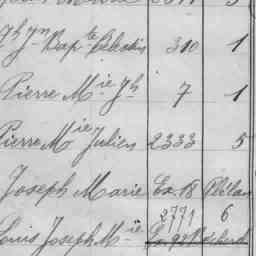 Jh Jn Bapte Célestin 310 1
Pierre Mie Jh 7 1
Pierre Mie Julien 2333 5
Joseph Marie Ex. 18 Plélan
2771 6
Louis Joseph Mie